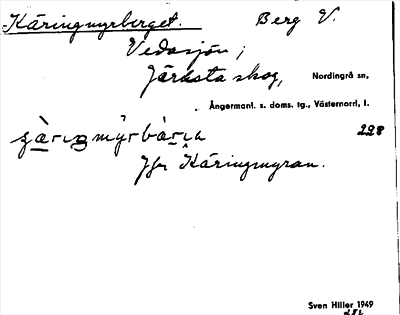 Käringmyrberget. Berg V.
Vedasjön;
Järesta skog, Nordingrå sn,
Ångermanl. s. doms. tg., Västernorrl. l.
298
Jfr Käringmyran.
Sven Hiller 1949